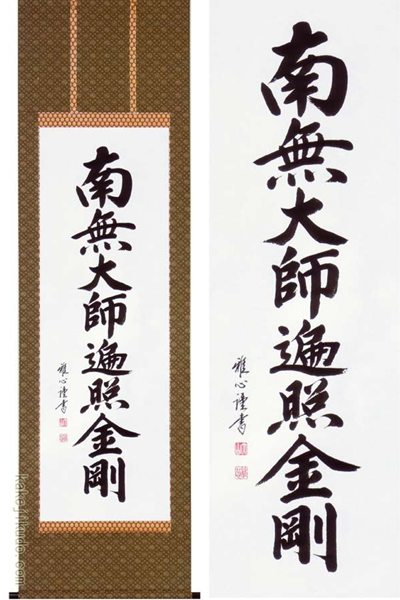 南無大師遍照金剛
雅心謹書
南無大師遍照金剛
雅心謹書